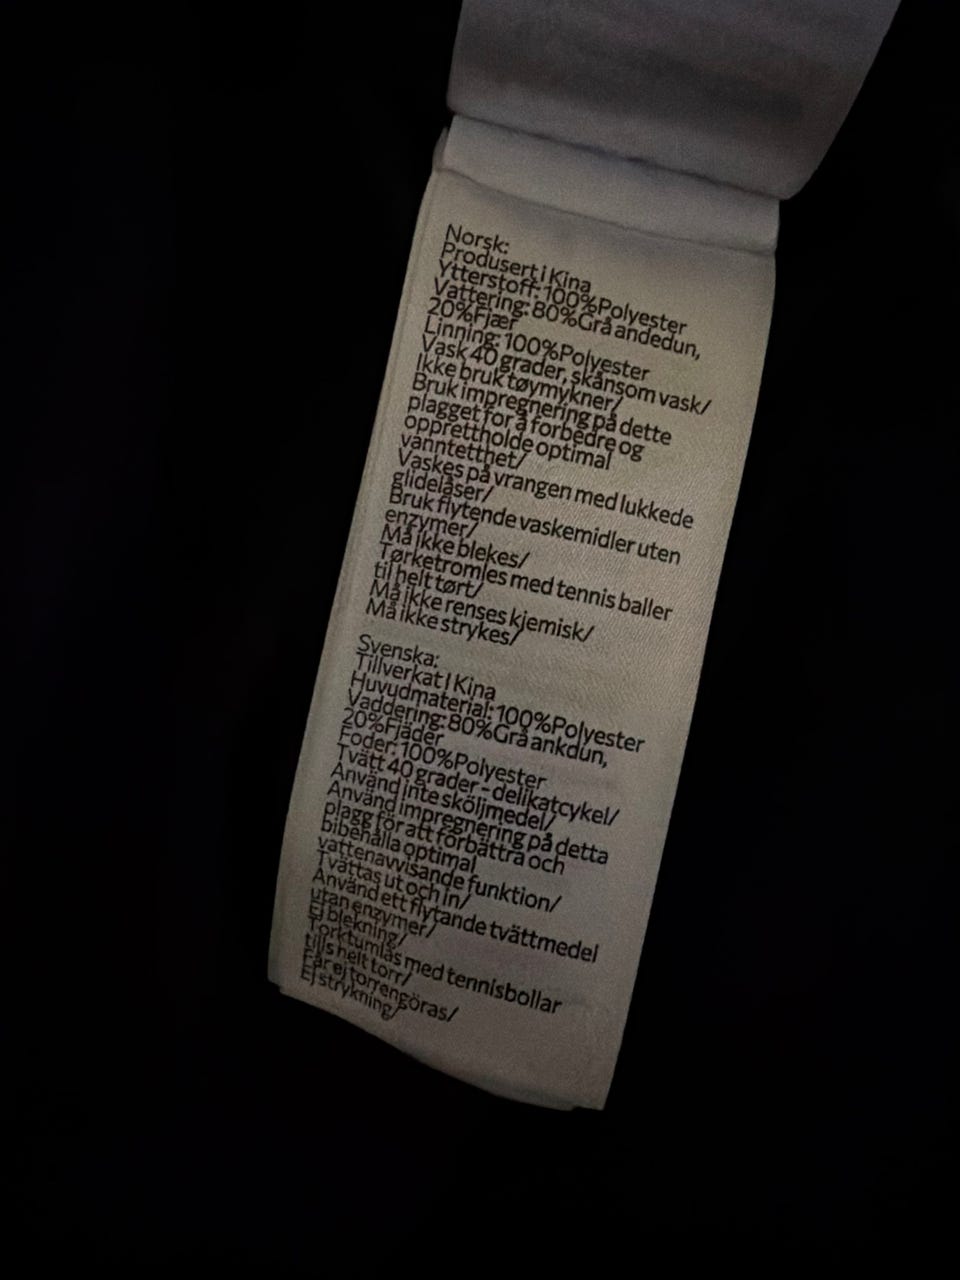 Norsk:
Produsert i Kina
Ytterstoff: 100%Polyester
Vattering: 80%Grå andedun,
20%Fjær
Linning: 100%Polyester
Vask 40 grader, skånsom vask/
Ikke bruk tøymykner/
Bruk impregnering på dette
plagget for å forbedre og
opprettholde optimal
vanntetthet/
Vaskes på vrangen med lukkede
glidelåser/
Bruk flytende vaskemidler uten
enzymer/
Må ikke blekes/
Tørketromles med tennis baller
til helt tørt/
Må ikke renses kjemisk/
Må ikke strykes/
Svenska:
Tillverkat I Kina
Huvudmaterial: 100%Polyester
Vaddering: 80%Grå ankdun,
20%Fjäder
Foder: 100%Polyester
Tvätt 40 grader - delikatcykel/
Använd inte sköljmedel/
Använd impregnering på detta
plagg för att förbättra och
bibehålla optimal
vattenavvisande funktion/
Tvättas ut och in/
Använd ett flytande tvättmedel
utan enzymer/
Ej blekning/
Torktumlas med tennisbollar
tills helt torr/
Får ej torrengöras/
Ej strykning/